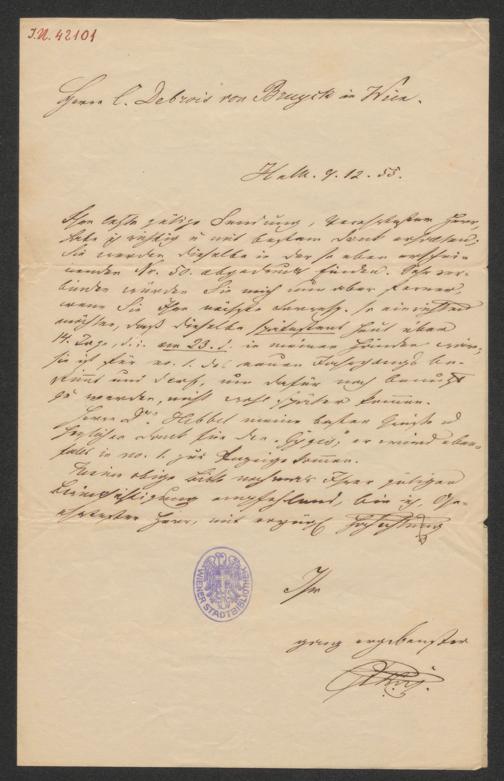 I.N. 42101
Herrn C. Debrois von Bruyck in Wien.
Halle. 9. 12. 55.
Ihre letzte gütige Sendung, verehrtester Herr,
habe ich richtig u mit bestem Dank erhalten;
Sie werden dieselbe in der so eben erschei-
nenden Nr. 50. abgedruckt finden. Sehr ver-
binden würden Sie mich nun aber ferner,
wenn Sie Ihre nächste so einrichten
möchten, daß dieselbe spätestens heut über
14. Tage, d. i. am 23. d. in meinen Händen wäre;
sie ist für no. 1. des neuen Jahrgangs be-
stimmt und darf, um dafür noch benutzt
zu werden, nicht später kommen.
Herrn Dr. Hebbel meine besten Grüße u
herzlichen Dank für den Gyges; er wird eben-
falls in no. 1. zur Anzeige kommen.
Meine obige Bitte nochmals Ihrer gütigen
Berücksichtigung empfehlend, bin ich, Ge-
ehrtester Herr, mit Hochachtung
Ihr
ganz ergebenster
WIENER STADTBIBLIOTHEK